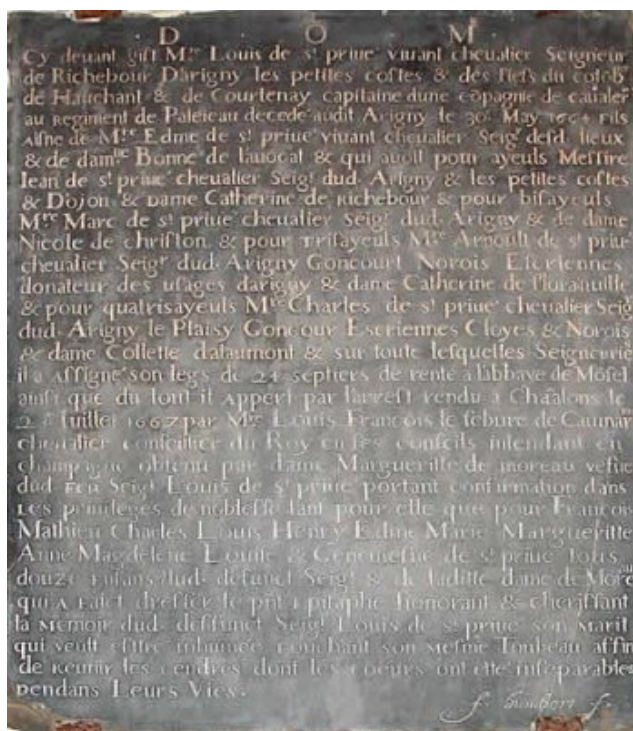 D O M
Cy deuant gist M.re Louis de st priue viuant cheualier Seigneur
de Richebour Darigny les petites costes & des fiefs du
de Hauchant & de Courtenay capitaine dune cōpagnie de caualer
au Regiment de Paleieau decede audit Arigny le 30. May 1664 Fils
Aisne de M.re Edme de st priue viuant cheualier Seigr desd lieux
& de damlle Bonne de lauocat & qui auoit pour ayeuls Messire
Iean de st priue cheualier Seigr dud. Arigny & les petites costes
& Dojon & Dame Catherine de Richebour & pour bisayeuls
M.re Marc de st priue cheualier Seigr dud. Arigny & de dame
Nicole de christon & pour Trisayeuls M.re Arnoult de st priue
cheualier Seigr dud. Arigny Goncourt Norois Escriennes
donateur des usages darigny & dame Catherine de floranuille
& pour quatrisayeuls M.re Charles de st priue cheualier Seig
dud. Arigny le Plaisy Goncour Escriennes Cloyes & Norois
& dame Collette dalaumont & sur toute lesquelles Seigneurie
il a Assigné son legs de 24 septiers de rente a labbaye de Mosel
ainsi que du tout il Appert par larrest rendu a Chaalons le
Iuillet 1667 par M.re Louis Francois le febure de Caumar
cheualier conseillier du Roy en ses conseils intendant en
champagne obtenu par dame Margueritte de moreau vefue
dud Feu Seigr Louis de st priue portant confirmation dans
Les priuileges de noblesse tant pour elle que pour Francois
Mathieu Charles Louis Henry Edme Marie Margueritte
Anne Magdelene Louise & Geneuiefue de st priue Tous
douze Enfans dud. defunct Seigr & de laditte dame de Moreau
qui A Faict dresser le pnt Epitaphe honorant & cherissant
la Memoir dud. deffunct Seigr Louis de st priue son Marit
qui veult estre inhumée touchant son Mesme Tombeau affin
de Reunir les cendres dont les coeurs ont esté inseparables
pendans Leurs Vies.